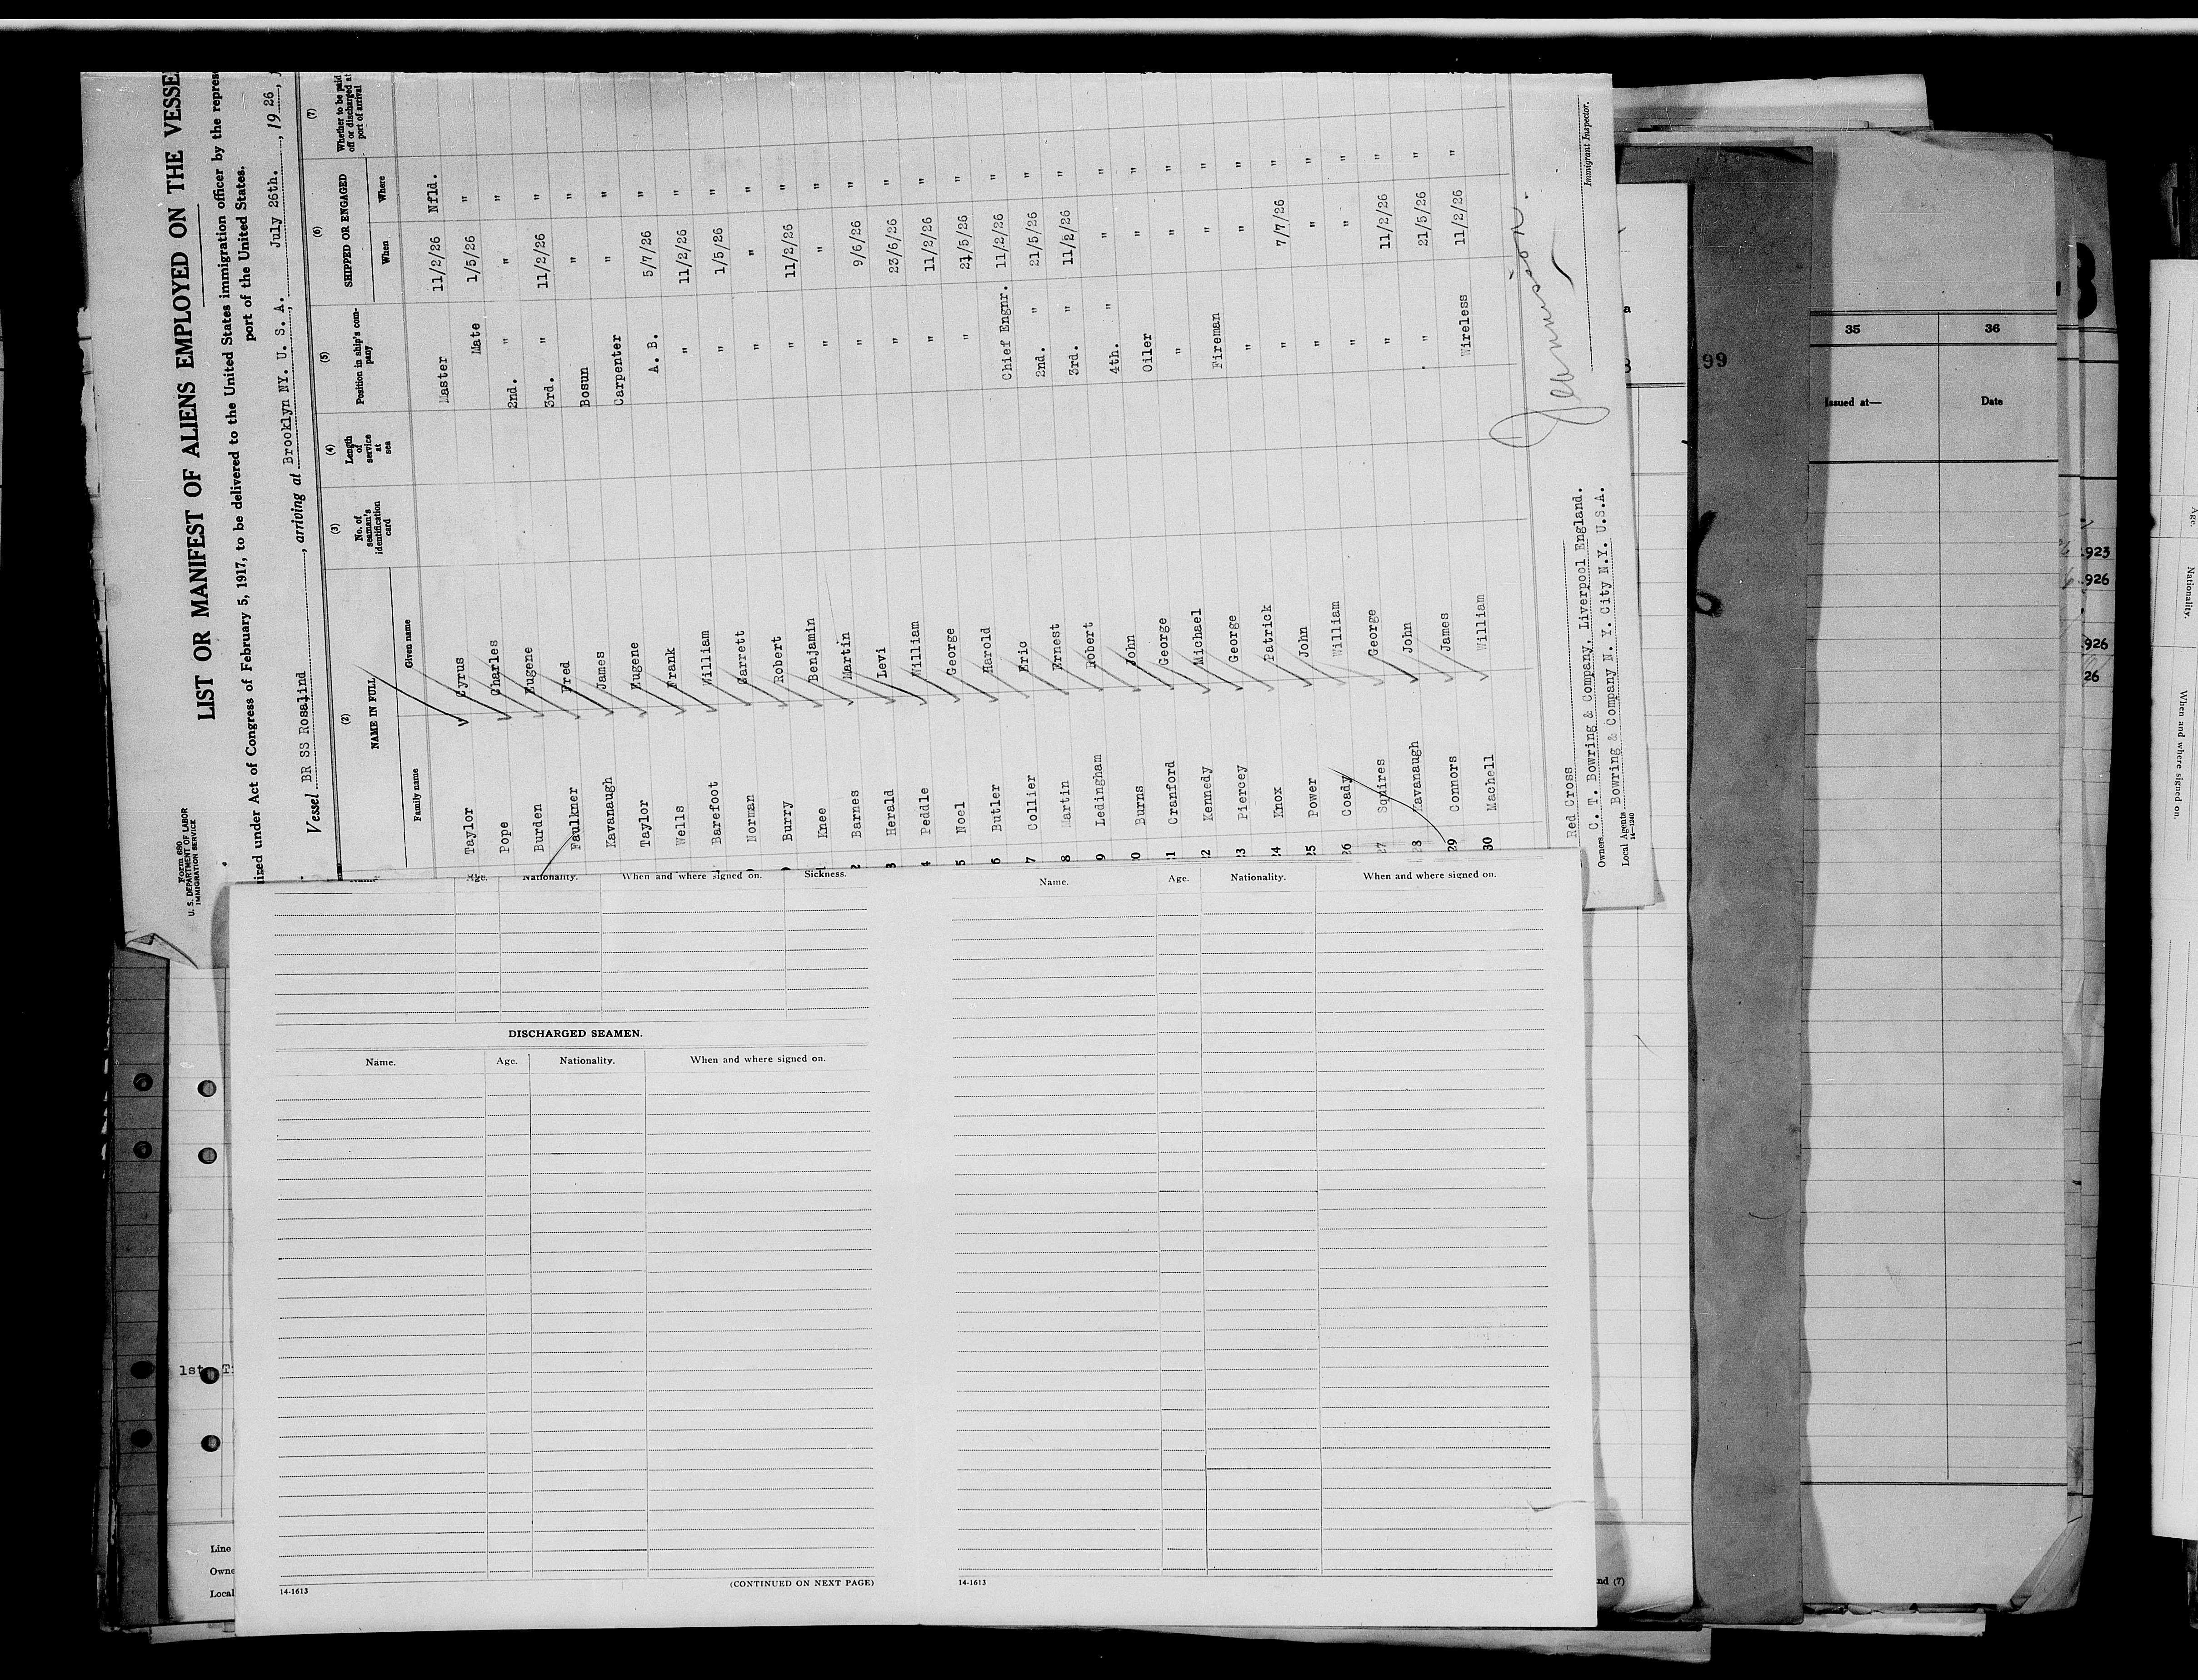 Form 680
U. S. DEPARTMENT OF LABOR
IMMIGRATION SERVICE
LIST OR MANIFEST OF ALIENS EMPLOYED ON THE VESSE
uired under Act of Congress of February 5, 1917, to be delivered to the United States immigration officer by the repres
port of the United States.
Vessel BR SS Rosalind, arriving at Brooklyn NY. U. S. A. July 26th., 1926,
(2) (3) (4) (5) (6) (7)
NAME IN FULL No. of seaman's identification card Length of service at sea Position in ship's company SHIPPED OR ENGAGED Whether to be paid off or discharged at port of arrival
Family name Given name When Where
Taylor Cyrus Master 11/2/26 Nfld.
Pope Charles Mate 1/5/26 "
Burden Eugene 2nd. " " "
Faulkner Fred 3rd. " 11/2/26 "
Kavanaugh James Bosun " "
Taylor Eugene Carpenter " "
Wells Frank A. B. 5/7/26 "
Barefoot William " 11/2/26 "
Norman Garrett " 1/5/26 "
Burry Robert " " "
Knee Benjamin " 11/2/26 "
2 Barnes Martin " " "
3 Herald Levi " 9/6/26 "
4 Peddle William " 23/6/26 "
5 Noel George " 11/2/26 "
6 Butler Harold " 21/5/26 "
7 Collier Eric Chief Engnr. 11/2/26 "
8 Martin Ernest 2nd. " 21/5/26 "
9 Ledingham Robert 3rd. " 11/2/26 "
0 Burns John 4th. " " "
1 Cranford George Oiler " "
22 Kennedy Michael " " "
23 Piercey George Fireman " "
24 Knox Patrick " " "
25 Power John " 7/7/26 "
26 Coady William " " "
27 Squires George " " "
28 Kavanaugh John " 11/2/26 "
29 Connors James " 21/5/26 "
30 Machell William Wireless 11/2/26 "
Immigrant Inspector.
Red Cross
Owners C. T. Bowring & Company, Liverpool England.
Local Agents Bowring & Company N. Y. City N.Y. U.S.A.
14—1240
Age. Nationality. When and where signed on. Sickness.
DISCHARGED SEAMEN.
Name. Age. Nationality. When and where signed on.
14-1613
(CONTINUED ON NEXT PAGE)
Name. Age. Nationality. When and where signed on.
14-1613
1st
Line
Owne
Local
nd (7)
99
35 36
Issued at— Date
923
926
926
26
Age.
Nationality.
When and where signed on.